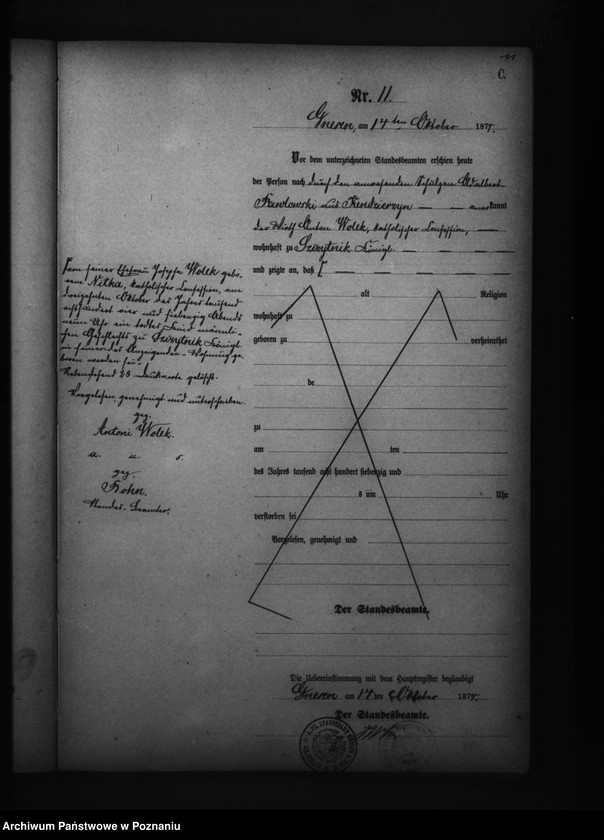 C.
Nr. 11.
Gnesen, am 14ten Oktober 187
Vor dem unterzeichneten Standesbeamten erschien heute
der Person nach durch den anwesenden Schulzen Adalbert
Pawlowski aus Kendzierzyn anerkannt
der Wirth Anton Wolek, katholischer Confession,
wohnhaft zu Szczytnik Königl.
und zeigte an, daß [
alt Religion
wohnhaft zu
geboren zu verheirathet
de
zu
am ten
des Jahres tausend acht hundert siebenzig und
s um Uhr
verstorben sei
Vorgelesen, genehmigt und
Der Standesbeamte.
Die Uebereinstimmung mit dem Hauptregister beglaubigt
Gnesen am 14 ten Oktober 187
Der Standesbeamte.
von seiner Ehefrau Josepha Wolek gebo-
renen Nitka, katholischer Confession, am
dreizehnten Oktober des Jahres tausend
achthundert vier und siebenzig Abends
neun Uhr ein todtes Kind männli-
chen Geschlechts zu Szczytnik Königl.
in seiner des Anzeigenden Wohnung ge-
boren worden sei.
Nebenstehend 28 Druckworte gelöscht.
Vorgelesen, genehmigt und unterschrieben
gez.
Antoni Wolek.
u. u. s.
gez.
Standes-Beamter.
Archiwum Państwowe w Poznaniu